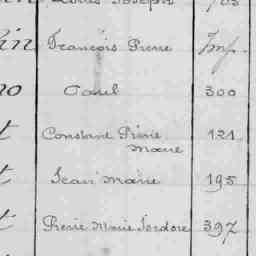 Louis Joseph 783
in François Pierre Imp.
no Paul 300
t Constant Pierre 121
Marie
t Jean Marie 195
t Pierre Marie Isidore 397